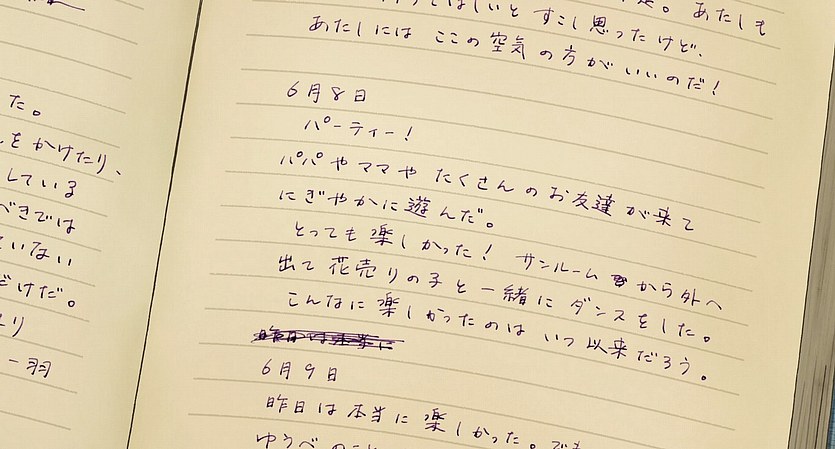 た。
をかけたり、
している
べきでは
いない
だけだ。
より
一羽
てほしいと すこし思ったけど、
あたしも
あたしには ここの空気の方がいいのだ!
6月8日
パーティー!
パパやママや たくさんのお友達が来て
にぎやかに遊んだ。
とっても楽しかった! サンルームから外へ
出て花売りの子と一緒にダンスをした。
こんなに楽しかったのは いつ以来だろう。
昨日は本当に
6月9日
昨日は本当に楽しかった。でも
ゆうべのこと